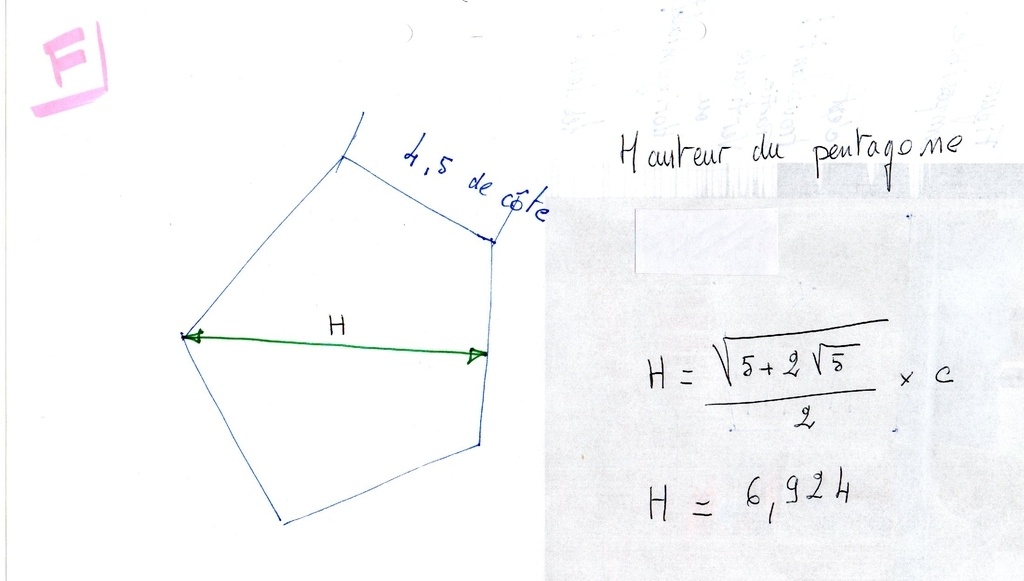 F
4,5 de côte
Hauteur du pentagone
H
H = √(5 + 2√5) / 2 × c
H = 6,924